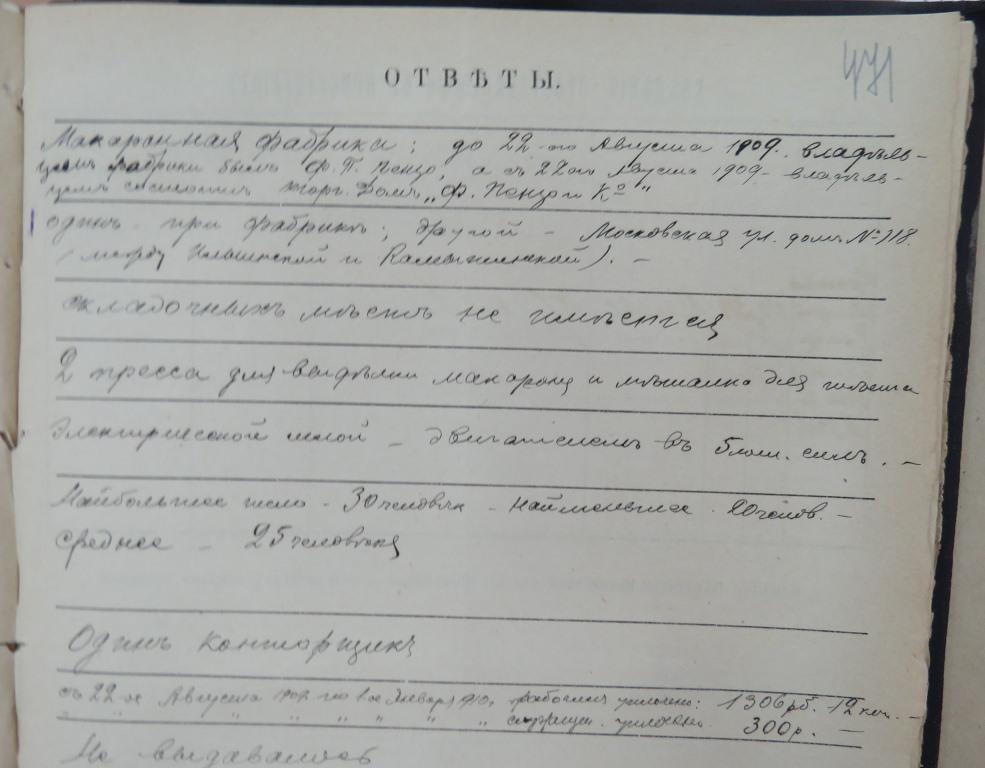 ОТВѢТЫ.
471
Макаронная фабрика; до 22-го Августа 1909. владѣль-
цемъ фабрики былъ Ф. П. Пенцо, а съ 22го Августа 1909. владѣль-
цемъ состоитъ торг. Домъ „Ф. Пенцо и Кº"
одинъ при фабрикѣ; другой – Московская ул. домъ № 118.
(между Ильинской и Камышинской). –
складочныхъ мѣстъ не имѣется
2 пресса для выдѣлки макаронъ и мѣшалка для тѣста
Электрической силой – двигателемъ въ 5 лош. силъ. –
Наибольшее число – 30 человѣкъ – наименьшее 20 челов. –
среднее – 25 человѣкъ
Одинъ конторщикъ
съ 22-го Августа 1909 по 1ое Января 1910, рабочимъ уплочено: 1306 рб. 12 коп. –
" " " " " " " служащ. уплочено 300 р. –
Не выдавалось